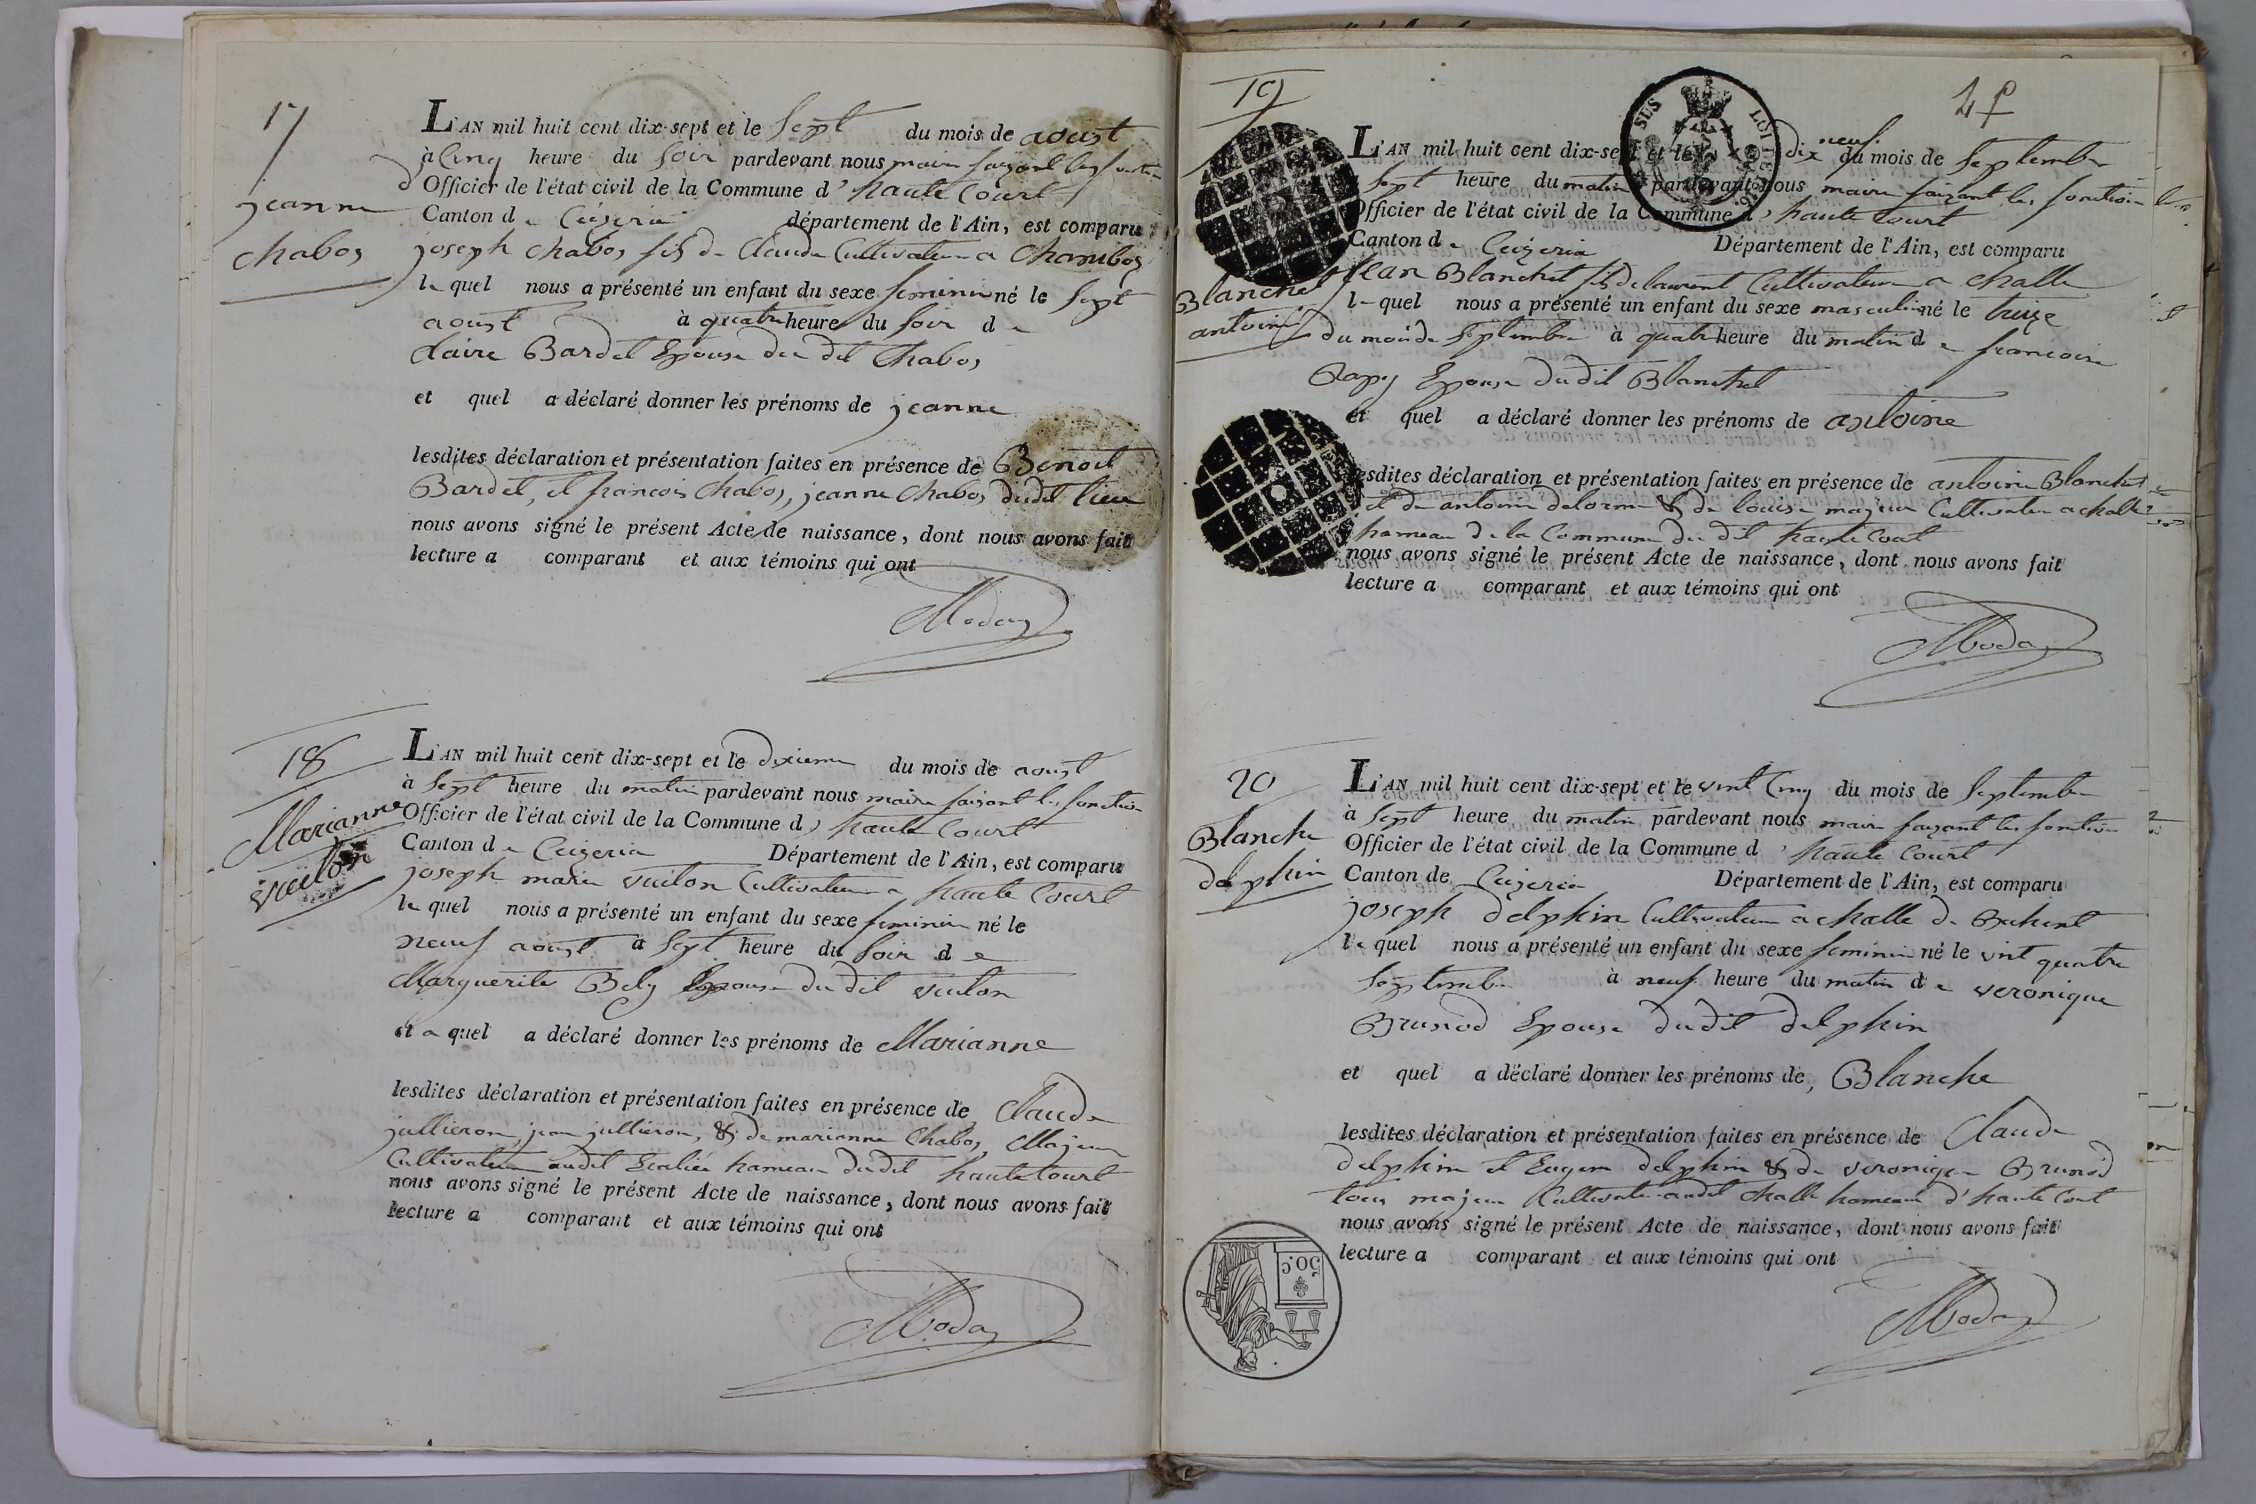 17
jeanne
chabos
L'AN mil huit cent dix-sept et le Sept du mois de aoust
à Cinq heure du Soir pardevant nous maire faisant les
Officier de l'état civil de la Commune d'haute Court
Canton de département de l'Ain, est comparu
joseph chabos fils de Claude Cultivateur a
le quel nous a présenté un enfant du sexe feminin né le Sept
aoust à quatre heure du Soir de
claire Bardet Epouse du dit Chabos
et quel a déclaré donner les prénoms de jeanne
lesdites déclaration et présentation faites en présence de Benoit
Bardet, et francois chabos, jeanne chabos dudit lieu
nous avons signé le présent Acte de naissance, dont nous avons fait
lecture a comparant et aux témoins qui ont
18
Marianne
vuilon
L'AN mil huit cent dix-sept et le dixieme du mois de aoust
à Sept heure du matin pardevant nous maire faisant les fonction
Officier de l'état civil de la Commune d'haute Court
Canton de Département de l'Ain, est comparu
joseph marie vuilon Cultivateur a haute Court
le quel nous a présenté un enfant du sexe feminin né le
neuf aoust à Sept heure du Soir de
Marguerite Bely Epouse du dit vuilon
et a quel a déclaré donner les prénoms de Marianne
lesdites déclaration et présentation faites en présence de Claude
jullieron, jean jullieron, & de marianne Chabos, Majeur
Cultivateur audit hameau dudit haute Court
nous avons signé le présent Acte de naissance, dont nous avons fait
lecture a comparant et aux témoins qui ont
19
Blanchet
antoine
L'AN mil huit cent dix-sept et le dix neuf du mois de Septembre
Sept heure du matin pardevant nous maire faisant les fonction
Officier de l'état civil de la Commune d'haute Court
Canton de Département de l'Ain, est comparu
jean Blanchet fils de laurent Cultivateur a challe
le quel nous a présenté un enfant du sexe masculin né le treize
du mois de Septembre à quatre heure du matin de francoise
Epouse du dit Blanchet
et quel a déclaré donner les prénoms de antoine
lesdites déclaration et présentation faites en présence de antoine Blanchet
et de antoine delorme & de louise majeur Cultivateur a challe
hameau de la Commune du dit haute Court
nous avons signé le présent Acte de naissance, dont nous avons fait
lecture a comparant et aux témoins qui ont
20
Blanche
delphin
L'AN mil huit cent dix-sept et le vint Cinq du mois de Septembre
à Sept heure du matin pardevant nous maire faisant les fonction
Officier de l'état civil de la Commune d'haute Court
Canton de Département de l'Ain, est comparu
joseph delphin Cultivateur a challe de
le quel nous a présenté un enfant du sexe feminin né le vint quatre
Septembre à neuf heure du matin de veronique
Brunod Epouse du dit delphin
et quel a déclaré donner les prénoms de, Blanche
lesdites déclaration et présentation faites en présence de Claude
delphin et Eugene delphin & de veronique Brunod
tous majeur Cultivateur audit challe hameau d'haute Court
nous avons signé le présent Acte de naissance, dont nous avons fait
lecture a comparant et aux témoins qui ont
50.C